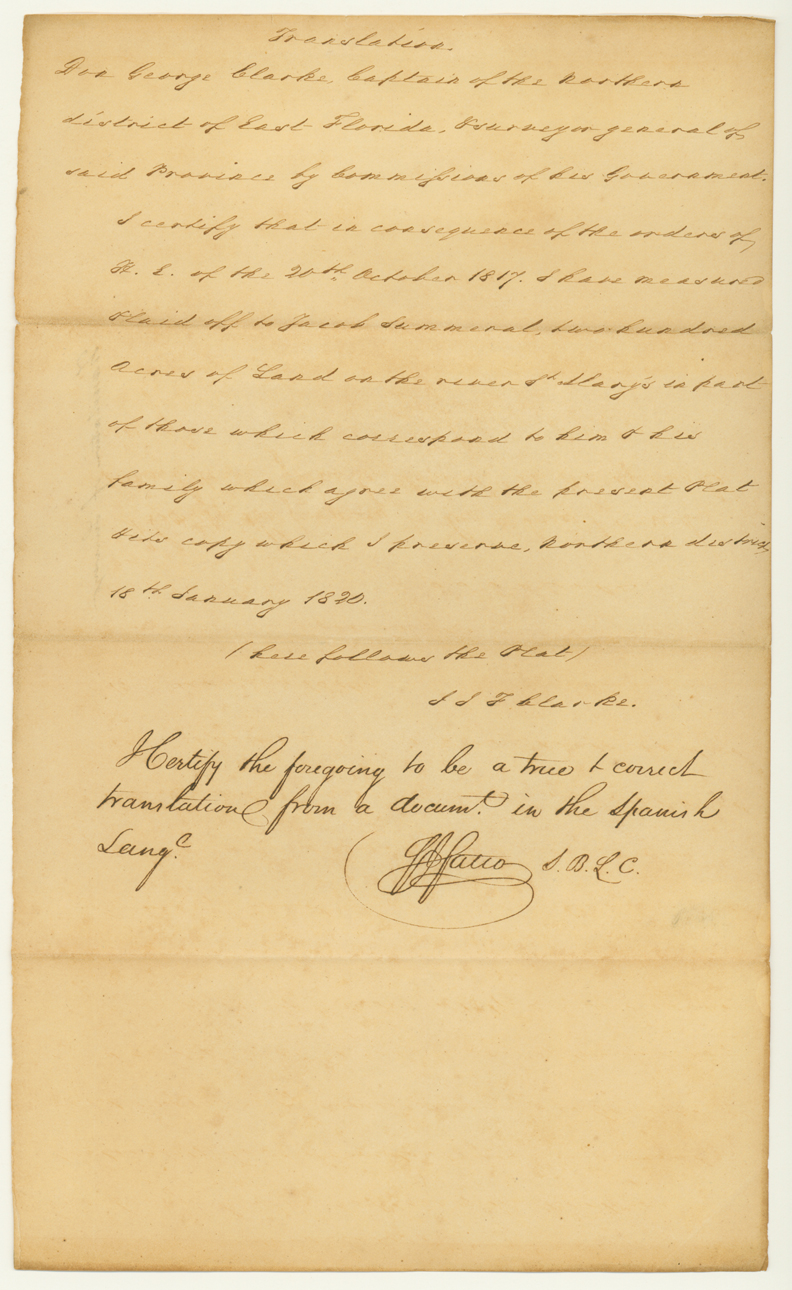 Translation.
Don George Clarke, Captain of the Northern
district of East Florida, & surveyor general of
said Province by Commissions of his Government.
I certify that in consequence of the orders of
H. E. of the 20th October 1817. I have measured
& laid off to Jacob Summeral, two hundred
Acres of Land on the river St. Mary's in part
of those which correspond to him & his
family which agree with the present Plat
& its copy which I preserve, Northern district,
18th January 1820.
(here follows the Plat)
Clarke.
I Certify the foregoing to be a true & correct
translation from a documt. in the Spanish
Lange.
S. B. L. C.